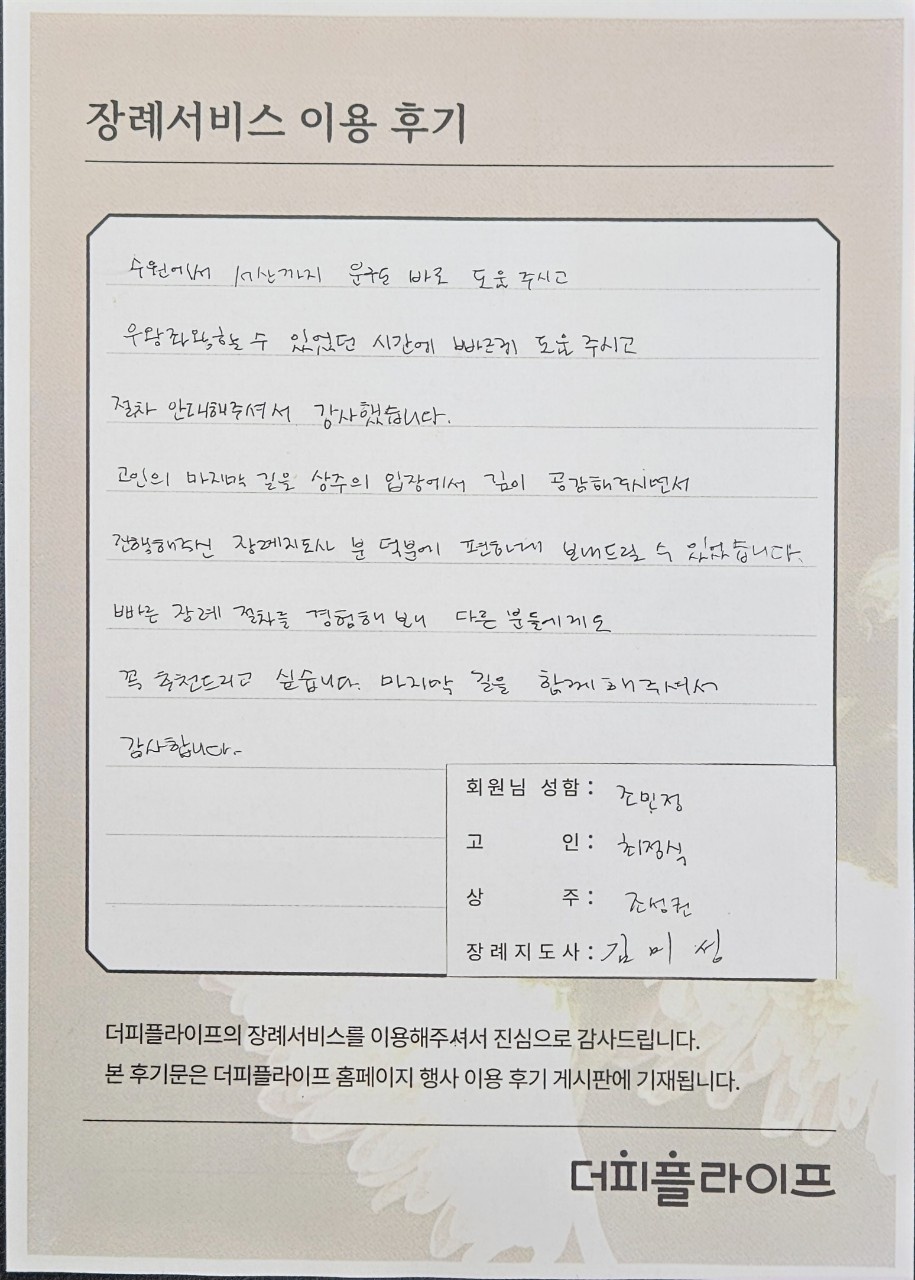 장례서비스 이용 후기
수원에서 서산까지 바로 도움 주시고
우왕좌왕할 수 있었던 시간에 빠르게 도움 주시고
절차 안내해주셔서 감사했습니다.
고인의 마지막 길을 상주의 입장에서 깊이 공감해주시면서
진행해주신 장례지도사 분 덕분에 편하게 보내드릴 수 있었습니다.
빠른 장례 절차를 경험해 보니 다른 분들에게도
꼭 추천드리고 싶습니다. 마지막 길을 함께해주셔서
감사합니다.
회원님 성함: 조민정
고 인: 최정식
상 주: 조성권
장례지도사: 김미성
더피플라이프의 장례서비스를 이용해주셔서 진심으로 감사드립니다.
본 후기문은 더피플라이프 홈페이지 행사 이용 후기 게시판에 기재됩니다.
더피플라이프